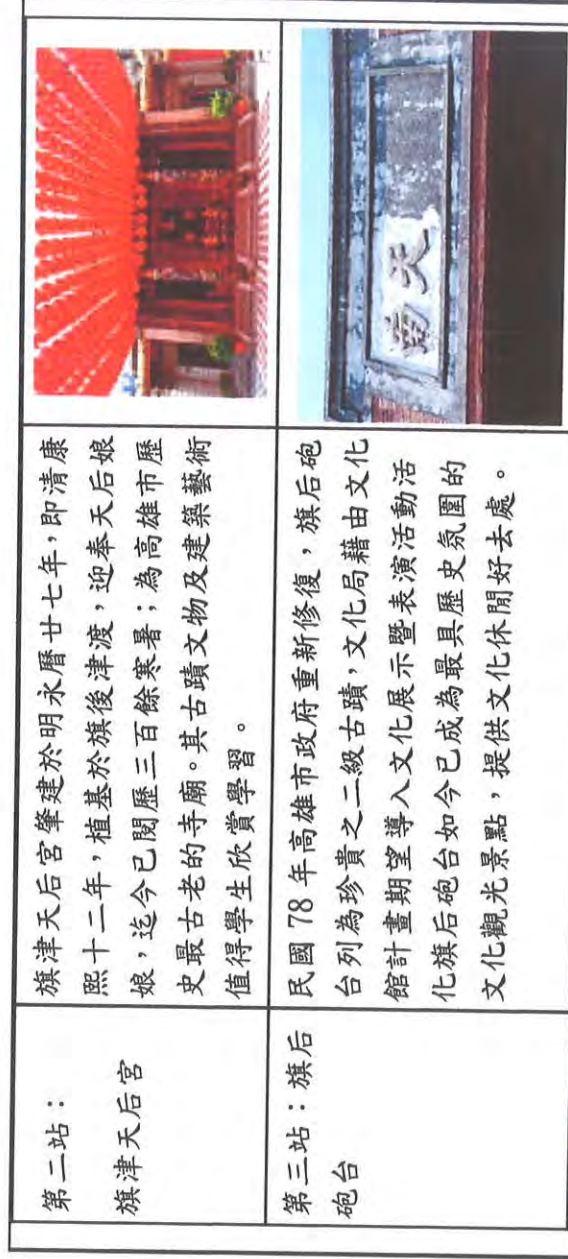 第二站：
旗津天后宮
旗津天后宮肇建於明永曆廿七年，即清康
熙十二年，植基於旗後津渡，迎奉天后娘
娘，迄今已閱歷三百餘寒暑；為高雄市歷
史最古老的寺廟。其古蹟文物及建築藝術
值得學生欣賞學習。
第三站：旗后
砲台
民國 78 年高雄市政府重新修復，旗后砲
台列為珍貴之二級古蹟，文化局藉由文化
館計畫期望導入文化展示暨表演活動活
化旗后砲台如今已成為最具歷史氛圍的
文化觀光景點，提供文化休閒好去處。
天南